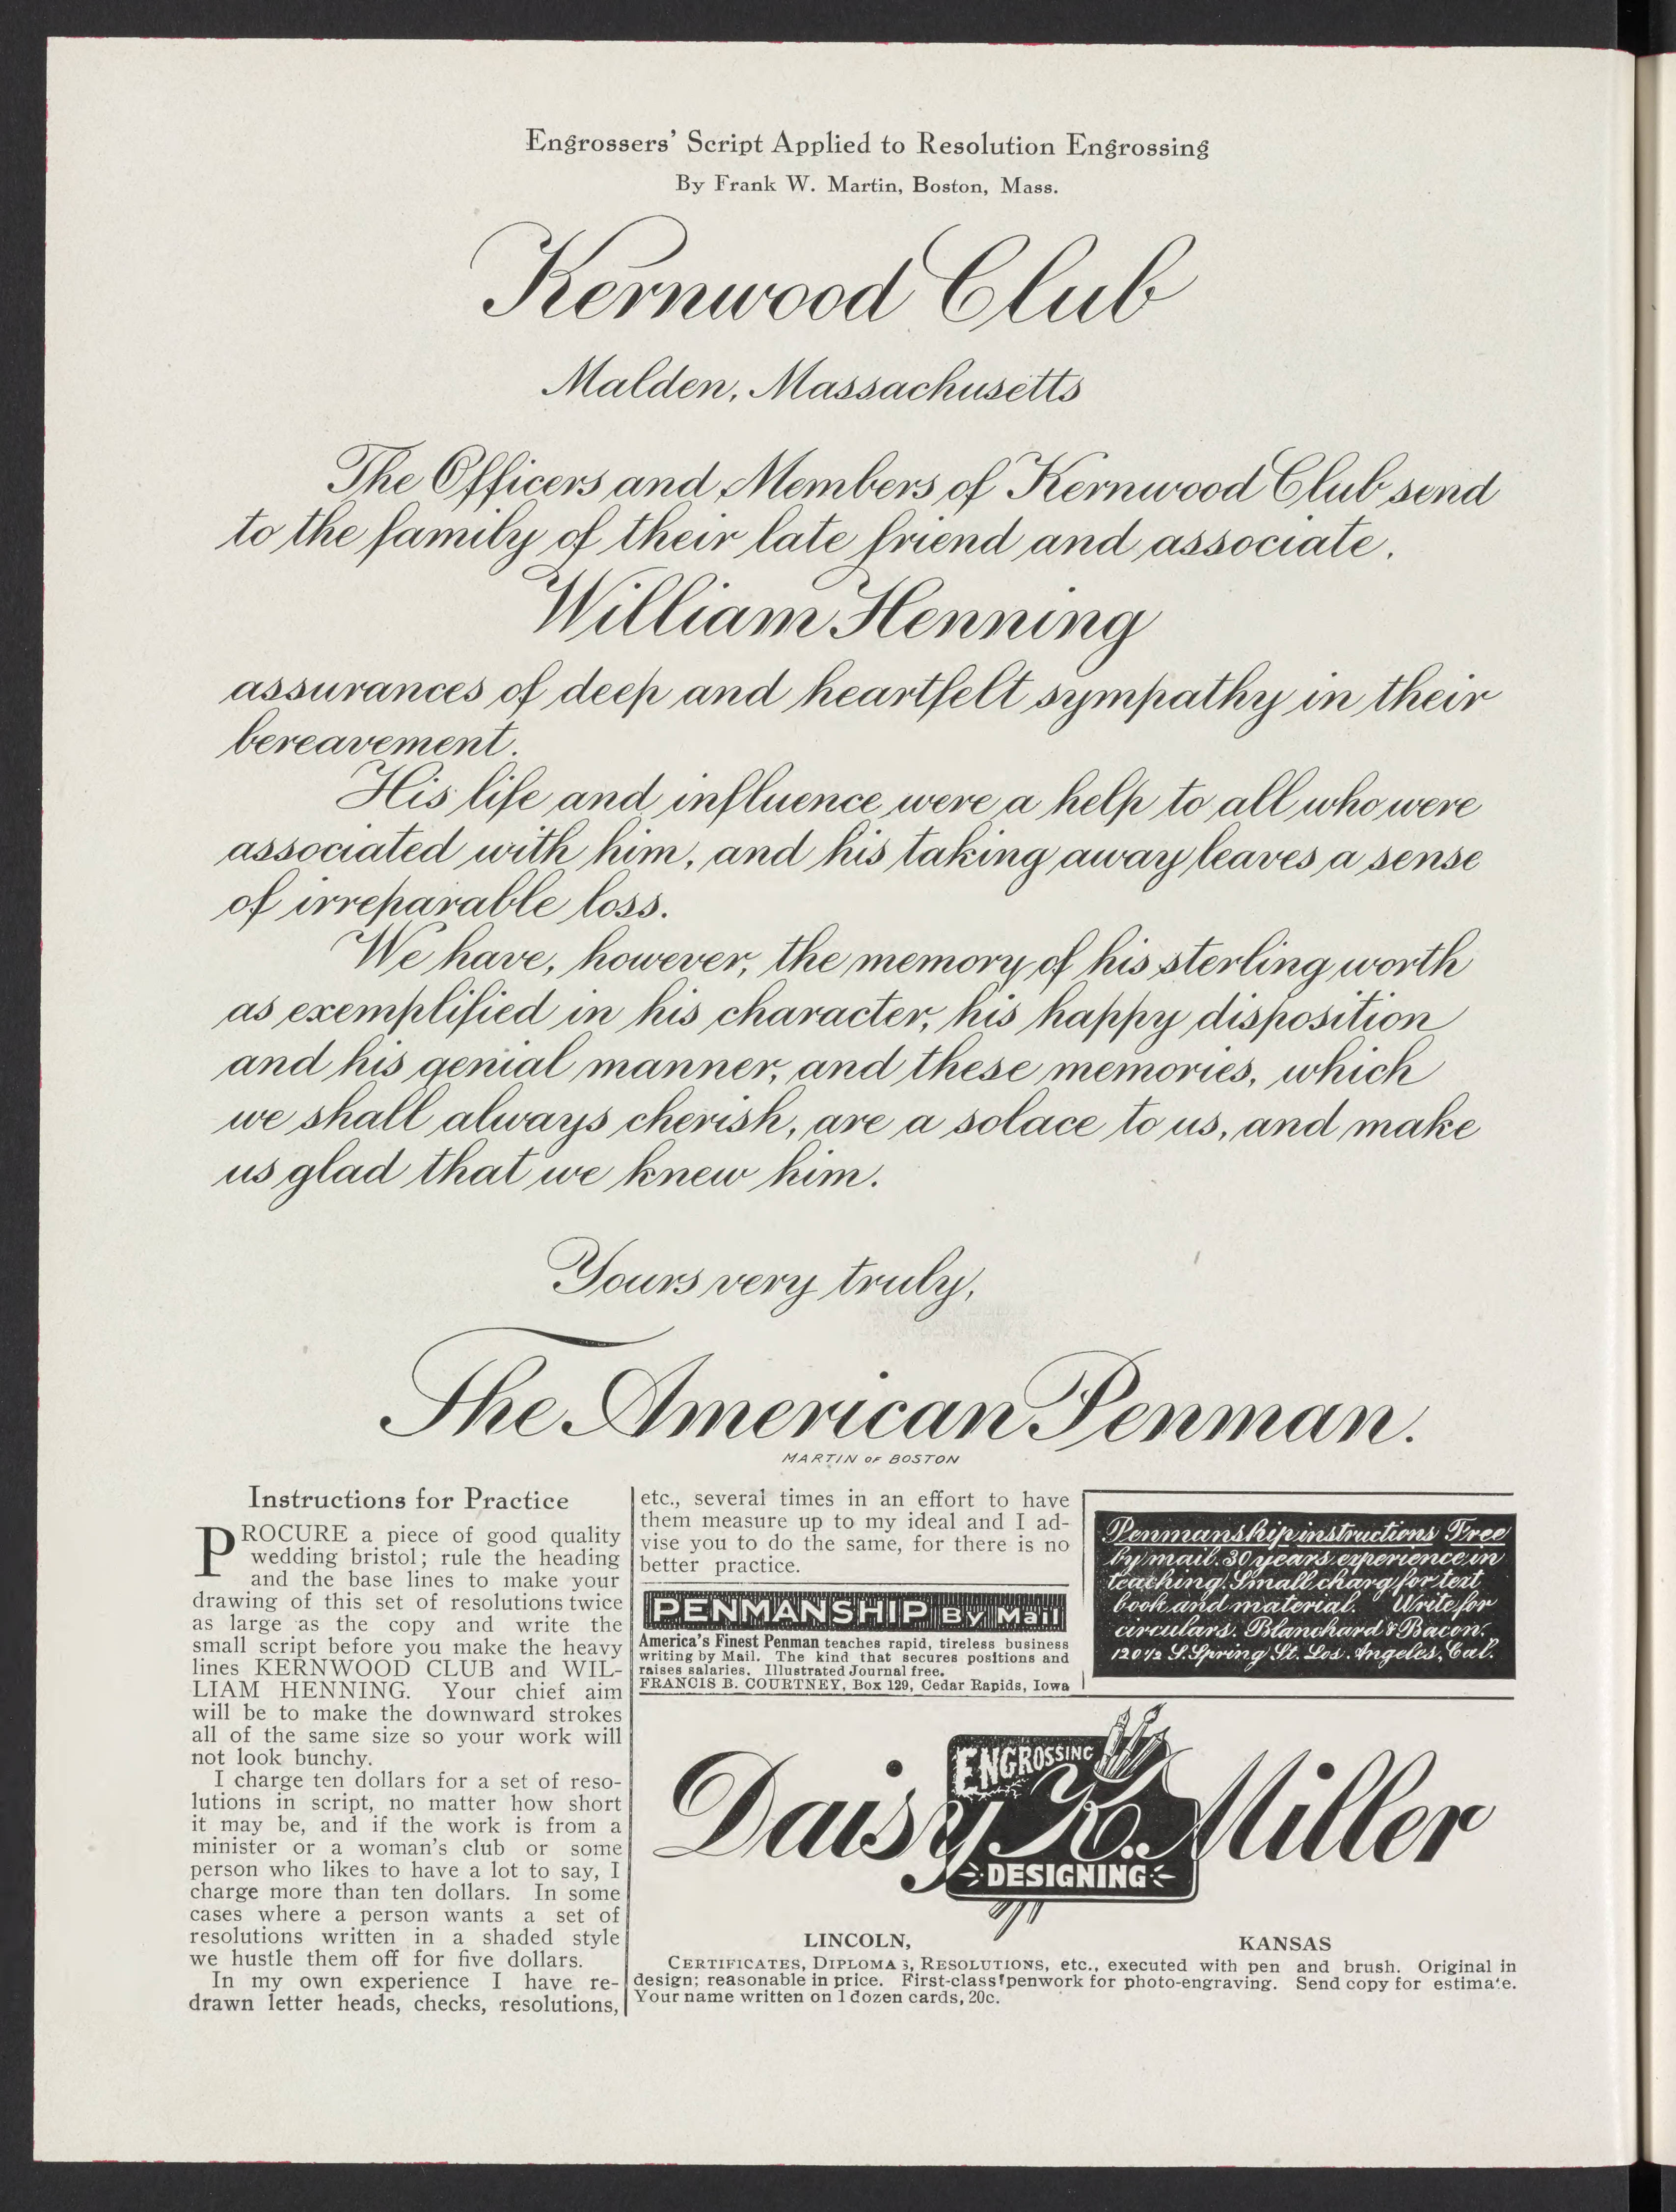 Engrossers' Script Applied to Resolution Engrossing
By Frank W. Martin, Boston, Mass.
Kernwood Club
Malden, Massachusetts
The Officers and Members of Kernwood Club send
to the family of their late friend and associate.
William Henning
assurances of deep and heartfelt sympathy in their
bereavement.
His life and influence were a help to all who were
associated with him, and his taking away leaves a sense
of irreparable loss.
We have, however, the memory of his sterling worth
as exemplified in his character, his happy disposition
and his genial manner, and these memories, which
we shall always cherish, are a solace to us, and make
us glad that we knew him.
Yours very truly,
The American Penman.
MARTIN OF BOSTON
Instructions for Practice
PROCURE a piece of good quality
wedding bristol; rule the heading
and the base lines to make your
drawing of this set of resolutions twice
as large as the copy and write the
small script before you make the heavy
lines KERNWOOD CLUB and WIL-
LIAM HENNING. Your chief aim
will be to make the downward strokes
all of the same size so your work will
not look bunchy.
I charge ten dollars for a set of reso-
lutions in script, no matter how short
it may be, and if the work is from a
minister or a woman's club or some
person who likes to have a lot to say, I
charge more than ten dollars. In some
cases where a person wants a set of
resolutions written in a shaded style
we hustle them off for five dollars.
In my own experience I have re-
drawn letter heads, checks, resolutions,
etc., several times in an effort to have
them measure up to my ideal and I ad-
vise you to do the same, for there is no
better practice.
PENMANSHIP By Mail
America's Finest Penman teaches rapid, tireless business
writing by Mail. The kind that secures positions and
raises salaries. Illustrated Journal free.
FRANCIS B. COURTNEY, Box 129, Cedar Rapids, Iowa
Penmanship instructions Free
by mail. 30 years experience in
teaching. Small charg for text
book and material. Write for
circulars. Blanchard & Bacon.
120 1/2 S. Spring St. Los. Angeles, Cal.
ENGROSSING
Daisy K. Miller
DESIGNING
LINCOLN, KANSAS
CERTIFICATES, DIPLOMAS, RESOLUTIONS, etc., executed with pen and brush. Original in
design; reasonable in price. First-class penwork for photo-engraving. Send copy for estimate.
Your name written on 1 dozen cards, 20c.